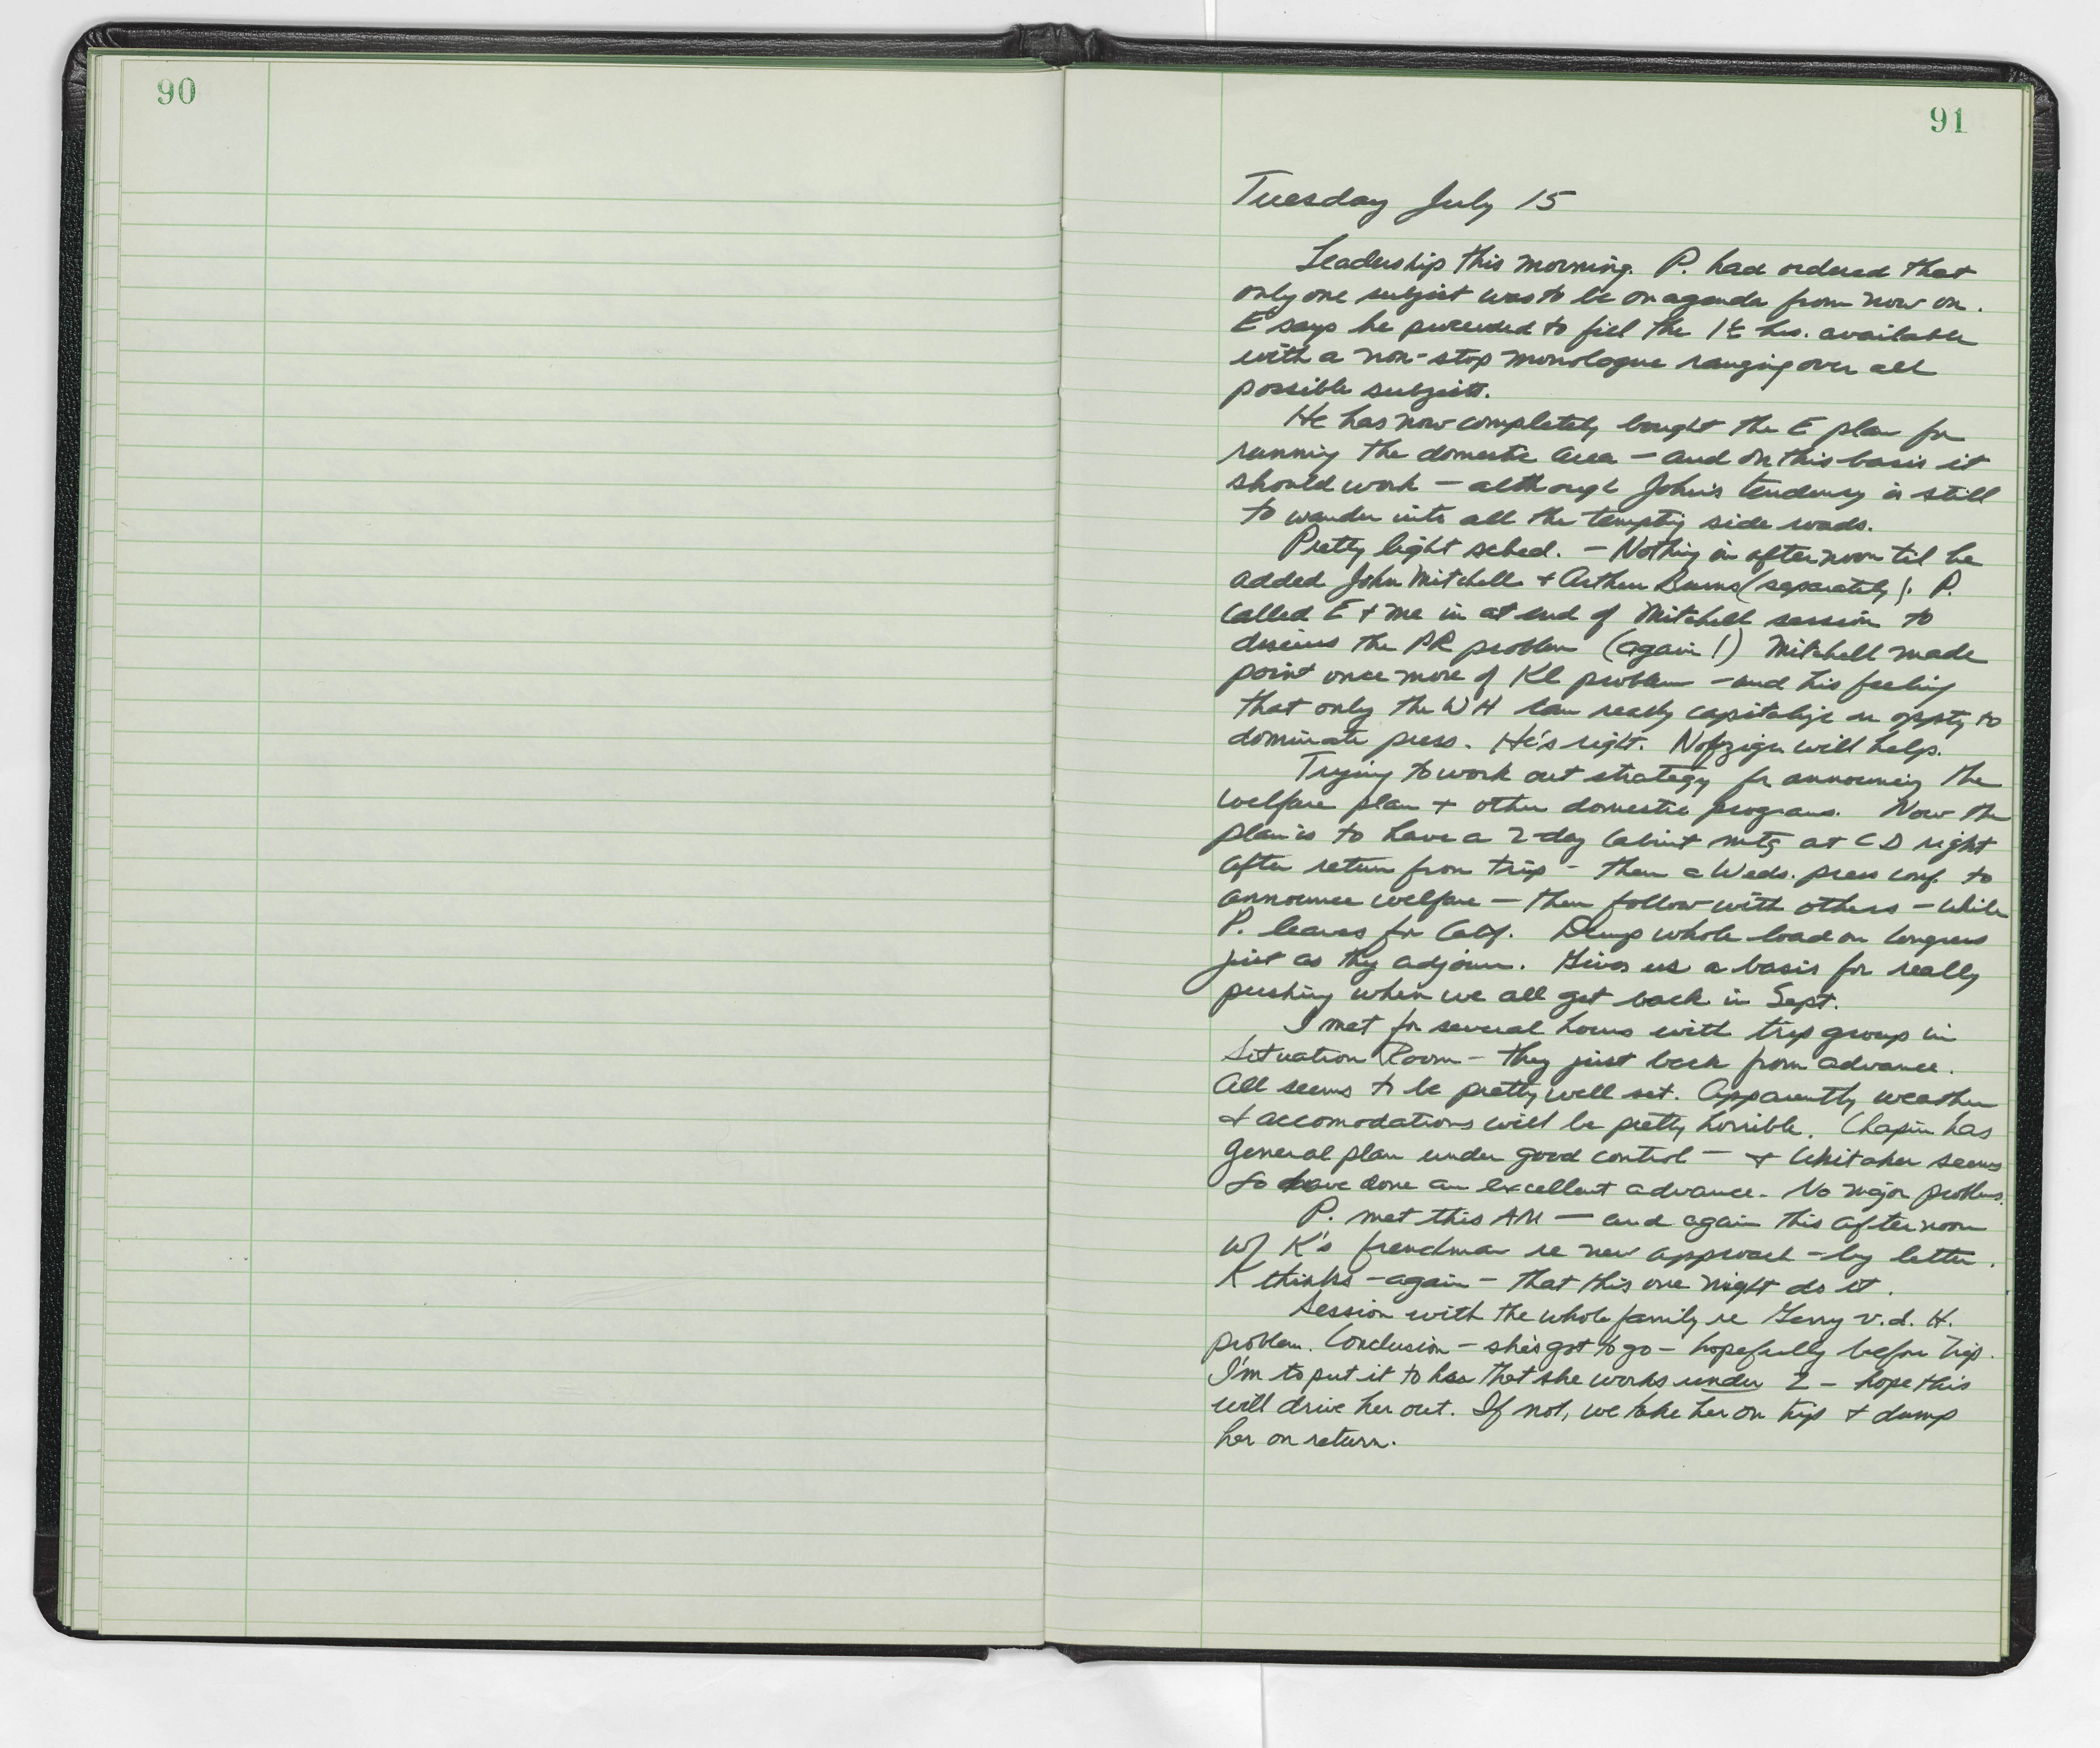 90
91
Tuesday July 15
Leadership this morning. P. had ordered that
only one subject was to be on agenda from now on.
E says he proceeded to fill the 1½ hrs. available
with a non-stop monologue ranging over all
possible subjects.
He has now completely bought the E plan for
running the domestic area — and on this basis it
should work — although John's tendency is still
to wander into all the tempting side roads.
Pretty light sched. — Nothing in afternoon til he
added John Mitchell + Arthur Burns (separately). P.
called E + me in at end of Mitchell session to
discuss the PR problem (again!) Mitchell made
point once more of Kl problem — and his feeling
that only the WH can really capitalize on oppty to
dominate press. He's right. Nofziger will help.
Trying to work out strategy for announcing the
welfare plan + other domestic programs. Now the
plan is to have a 2-day Cabinet mtg at CD right
after return from trip - then a Weds. press conf. to
announce welfare — then follow with others — while
P. leaves for Calif. Dump whole load on Congress
just as they adjourn. Gives us a basis for really
pushing when we all get back in Sept.
I met for several hours with trip group in
Situation Room - they just back from advance.
All seems to be pretty well set. Apparently weather
+ accomodations will be pretty horrible. Chapin has
general plan under good control — + Whitaker seems
to have done an excellent advance. No major problems.
P. met this AM — and again this afternoon
w/ K's frenchman re new approach - by letter.
K thinks - again - that this one might do it.
Session with the whole family re Gerry v.d. H.
problem. Conclusion - she's got to go - hopefully before trip.
I'm to put it to her that she works under Z - hope this
will drive her out. If not, we take her on trip + dump
her on return.